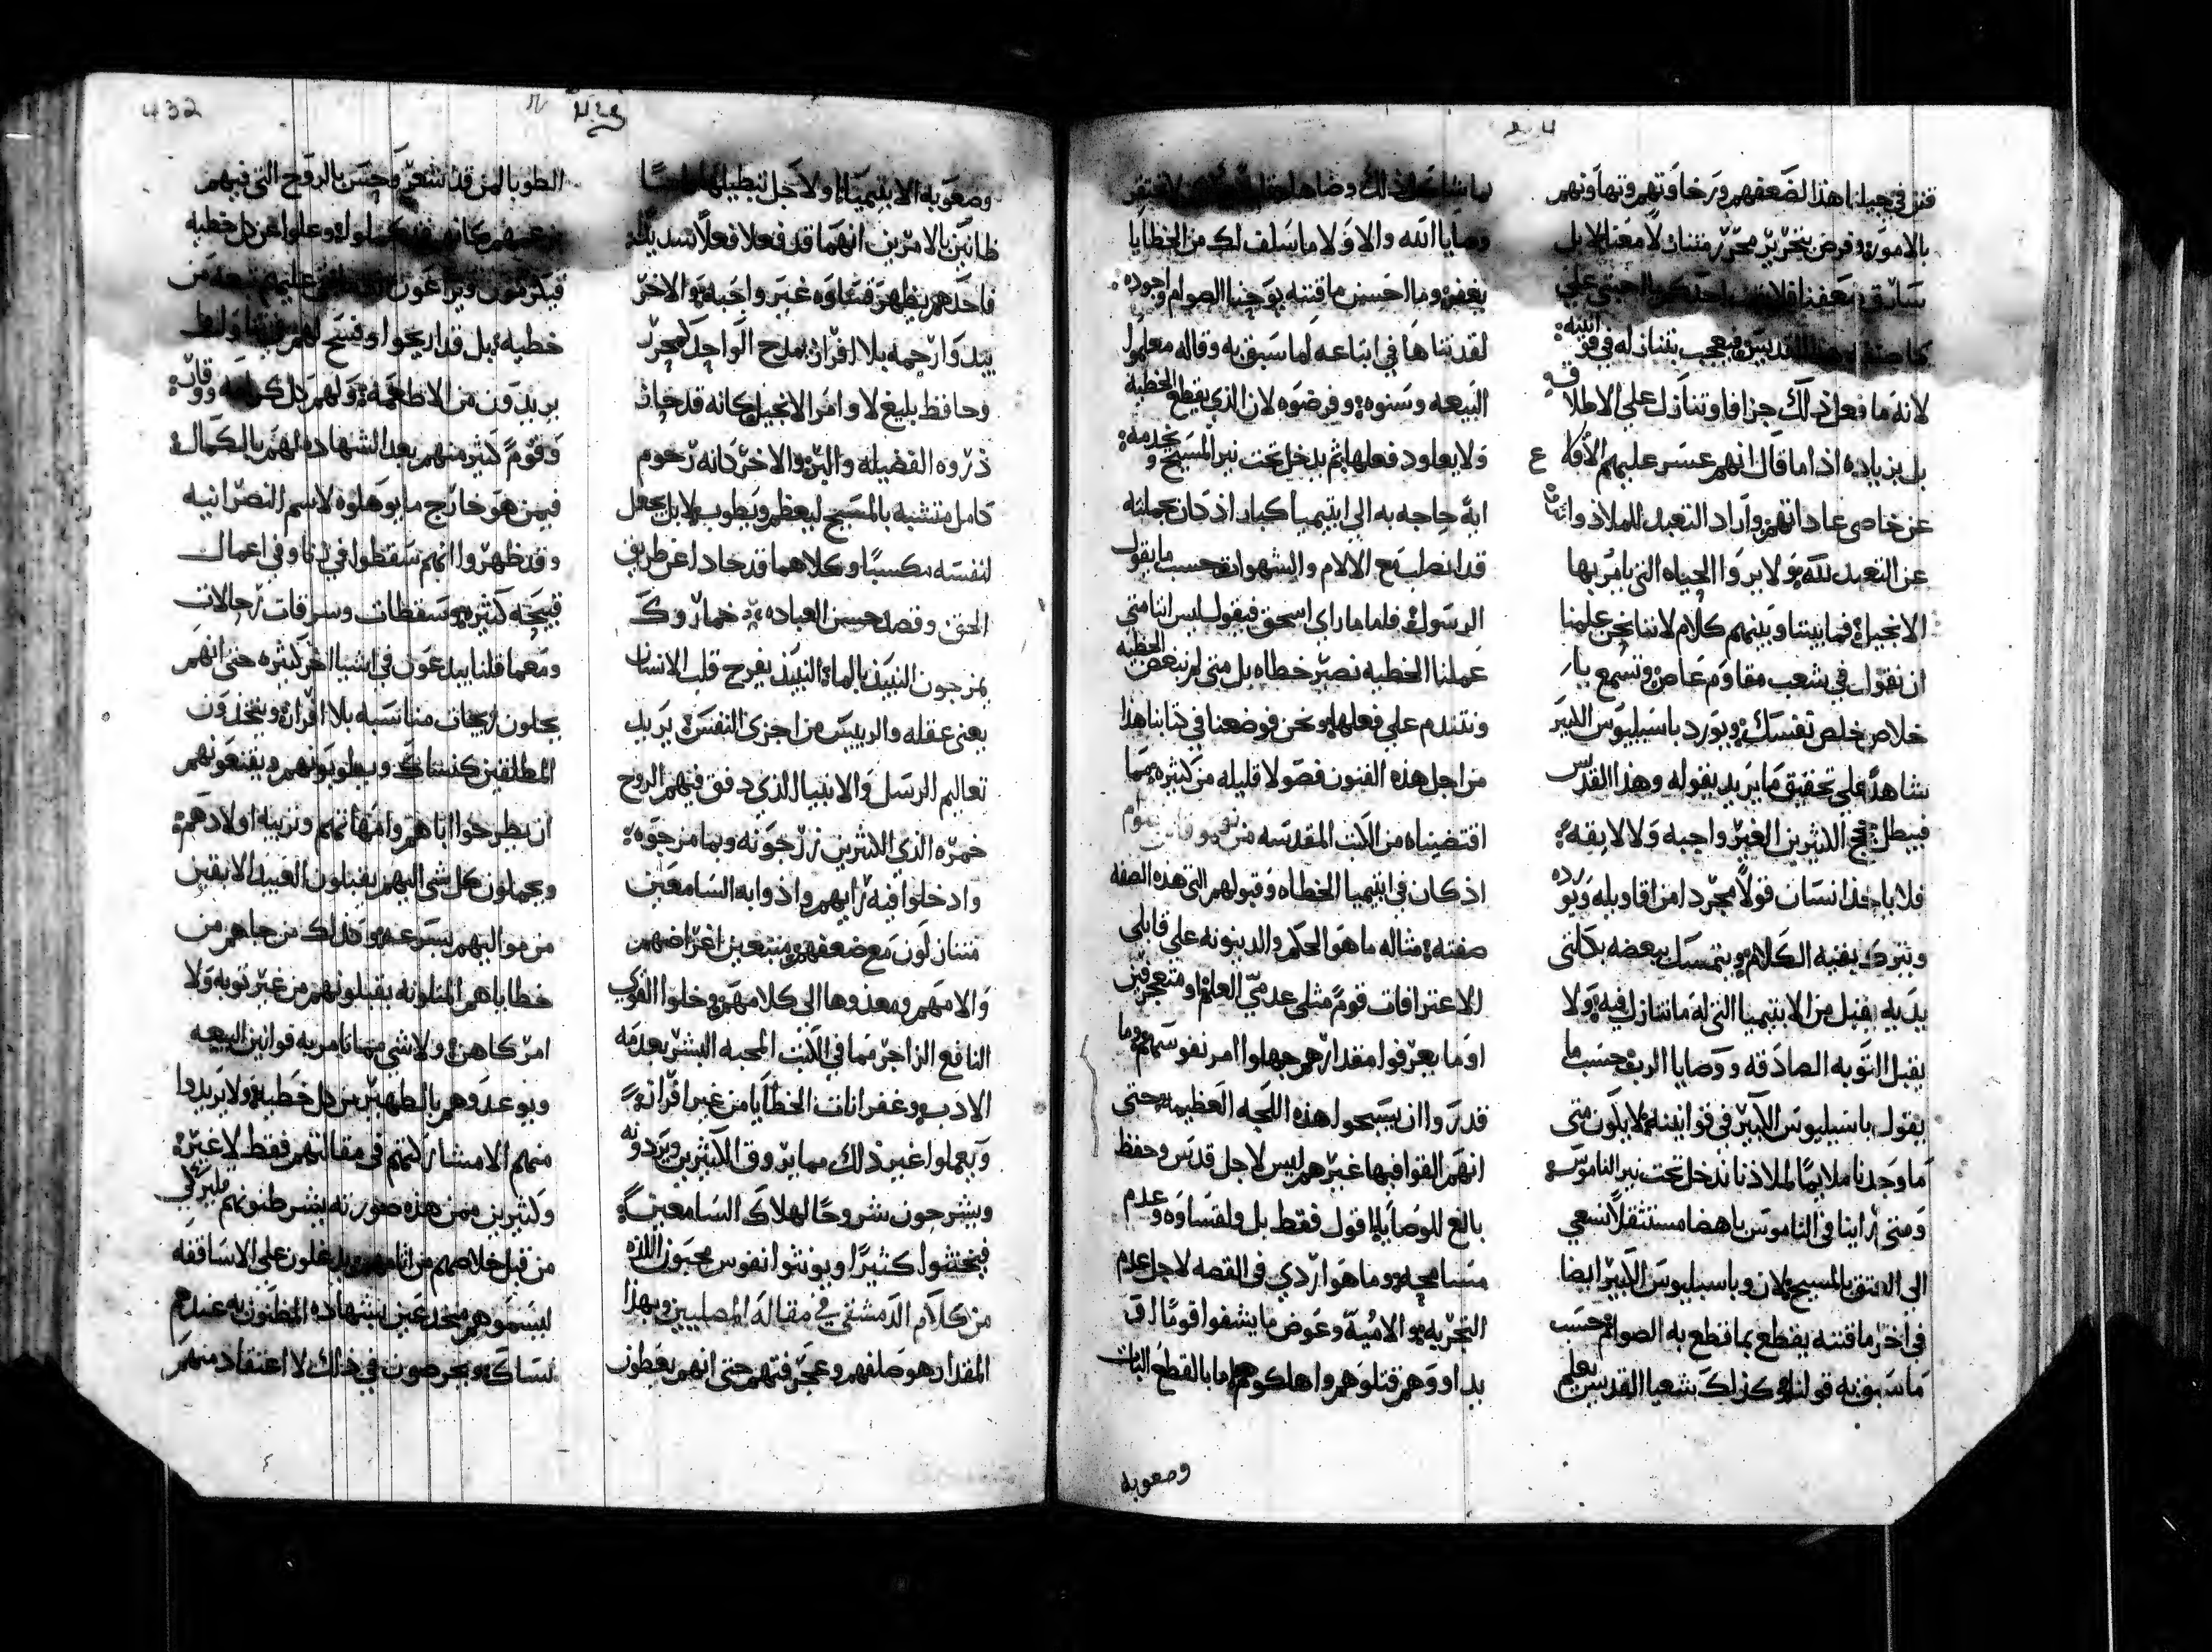 قنن في جيلنا هذا لضعفهم ورخاوتهم وتهاونهم
بالامور وفرض بتحرير محرر متنازلا معنا لا بل
لانه ما فعل ذلك جزافا وتنازل علي الاطلاق
بل بزياده اذا ما قال انهم عسر عليهم الافكا
عن خاصي عاداتهم واراد التعبد للملاذ وانثنا
عن التعبد لله ولا يروا الحياه التي يامر بها
الانجيل فما بيننا وبينهم كلام لاننا نحن علمنا
ان نقول في شعب مقاوم عاص ونسمع بان
خلاص خلص نفسك ويورد باسيليوس الكبير
شاهدا علي تحقيق ما يريد بقوله وهذا القديس
فيبطل حجج الكثيرين الغير واجبه ولا لايقه
فلا ياخذ انسان قولا مجردا من اقاويله ويورده
ويترك بقية الكلام ويتمسك ببعضه بكلتي
يديه يقبل من الابتيميا التي له ما تنازل فيه ولا
يقبل التوبه الصادقه ووصايا الرب حسب ما
يقول باسيليوس الكبير في قوانينه لا يكون متي
ما وجدنا ملايما لملاذنا ندخل تحت نير الناموس
ومتي راينا في الناموس باهضا مستثقلا نسعي
الي العتق بالمسيح لان وباسيليوس الكبير ايضا
في اخر ما قننه يقطع بما قطع به الصوام حسب
ما سبق به قولنا وكذلك شعيا القديس يعلم
وصايا الله والا فلا ما سلف لك من الخطايا
يغفر وما احسن ما قننه يوحنا الصوام واجوده
لقد تناها في اتباعه لما سبق به وقاله معلموا
البيعه وسنوه وفرضوه لان الذي يقطع الخطيه
ولا يعاود فعلها ثم يدخل تحت نير المسيح ويخدمه
اية حاجه به الي ابتيميا كبار اذ كان بجملته
قد انصلب مع الالام والشهوات حسب ما يقول
الرسول فلما ما راي اسحق فيقول ليس اننا متي
عملنا الخطيه نصير خطاه بل متي لم نبغض الخطيه
ونتندم علي فعلها ونحن فوضعنا في كتابنا هذا
من اجل هذه الفنون فصولا قليله من كثيره مما
اقتضيناه من الكتب المقدسه من
اذ كان في ابتيميا الخطاه وقبولهم التي هذه الصفه
صفته مثاله ما هو الحكم والدينونه علي قابلي
الاعترافات قوم مثلي عدمي العلم او متعجرفين
او ما يعرفوا مقدارهم جهلوا امر نفوسهم وما
قدروا ان يسبحوا هذه اللجه العظيمه حتي
انهم القوا فيها غيرهم ليس لاجل قدس وحفظ
بالغ للوصايا اقول فقط بل ولقساوه وعدم
مسامحه وما هو اردي في القصه لاجل عدم
التجربه والاميه وعوض ما يشفوا قوما او
يداووهم قتلوهم واهلكوهم اما بالقطع البات
وصعوبه
432
وصعوبه الابتيميا او لاجل تبطيلها
ظانين بالامرين انهما قد فعلا فعلا سديدا
فاحدهم يظهر قساوه غير واجبه والاخر
يبدوا رحمه بلا افراز يمدح الواحد كمحرر
وحافظ بليغ لاوامر الانجيل وكانه قد حاز
ذروه الفضيله والبر والاخر كانه رحوم
كامل متشبه بالمسيح ليعظم ويطوب لا بل يجعل
لنفسه مكسبا وكلاهما قد حادا عن طريق
الحق وقصد حسن العباده خماروك
يمزجون النبيذ بالماء النبيذ يفرح قلب الانسان
يعني عقله والرييس من اجزي النفس يريد
تعاليم الرسل والانبيا الذي دفق فيهم الروح
خمره الذي الكثيرين زرجونه وبما مزجوه
وادخلوا فيه رايهم واذوا به السامعين
متنازلون مع ضعفهم ومتبعين اغراضهم
والامهم ومعذوها الي كلامهم وخلوا القول
النافع الزاجر مما في الكتب المحبه البشر بعدمه
الادب وغفرانات الخطايا من غير افراز
ويعملوا غير ذلك مما يروق الكثيرين ويردونه
ويشرحون شروحا لهلاك السامعين
فيخنثوا كثيرا ويونثوا نفوس محبون اللذه
من كلام الدمشقي في مقالة المصليين وبهذا
المقدار هو صلفهم وعجرفتهم حتي انهم يعطون
الطوبا لمن قد شعر وحس بالروح التي فيهم
يريدون من الاطعمه ولهم كل كرامه ووقار
وقوم كثير منهم بعد الشهاده لهم بالكمال
فيمن هو خارج ما يوهلوه لاسم النصرانيه
وقد ظهروا انهم سقطوا في زنا وفي اعمال
قبيحه كثيره وسقطات وسرقات رجالات
ومعما قلنا يبدعون في اشيا اخر كثيره حتي انهم
يحلون زيجات مناسبه بلا افراز ويتخذون
المطلقين كنساك ويطوبونهم ويقنعونهم
ان يطرحوا اباهم وامهاتهم وتربية اولادهم
ويحملون كل شي اليهم يقبلون العبيد الابقين
من مواليهم بسرعه وكذلك من جاهم من
خطاياهم المتلونه يقبلونهم من غير توبه ولا
امر كاهن ولا شي مما تامر به قوانين البيعه
ويوعدوهم بالطهر من كل خطيه ولا يريدوا
منهم الا مشاركتهم في مقالتهم فقط لا غير
وكثيرين ممن هذه صورته
من قبل خلاصهم من اثامهم ويدغلون علي الاساقفه
ليسموهم منخدعين بشهاده المظنون به عندهم
نساك ويحرصون في ذلك لا اعتقاد منهم